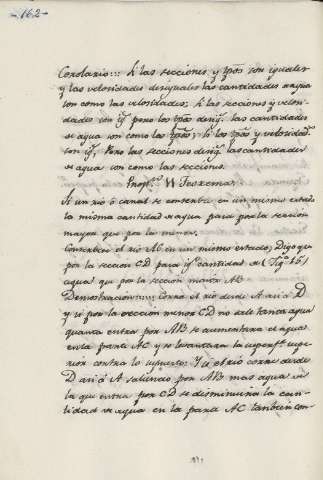 -162-
Corolario::: Si las secciones, y tpos son iguales
y las velosidades desiguales las cantidades de agua
son como las velosidades; Si las secciones y velosi-
dades son ig.s pero los tpos desig.s las cantidades
de agua son como los tpos; Si los tpos y velosidades
son ig.s Pero las secciones desig.s las cantidades
de agua son como las secciones.
Prop.n VI Teorema
Si un rio ó canal se conserba en un mismo estado
la misma cantidad de agua pasa por la seccion
mayor que por la menor.
Conserbese el rio AB en un mismo estado; Digo que
por la seccion CD pasa ig.l cantidad de (Fig.a 15)
agua que por la seccion maior AB
Demostracion::::: Corra el rio desde A acia D
y si por la seccion menor CD no sale tanta agua
quanta entra por AB se aumentara el agua
en la parte AC y se levantara la superf.e supe-
rior contra lo supuesto; Y si el rio corre desde
D acia A saliendo por AB mas agua de
la que entra por CD se disminuira la can-
tidad de agua en la parte AC tambien con-